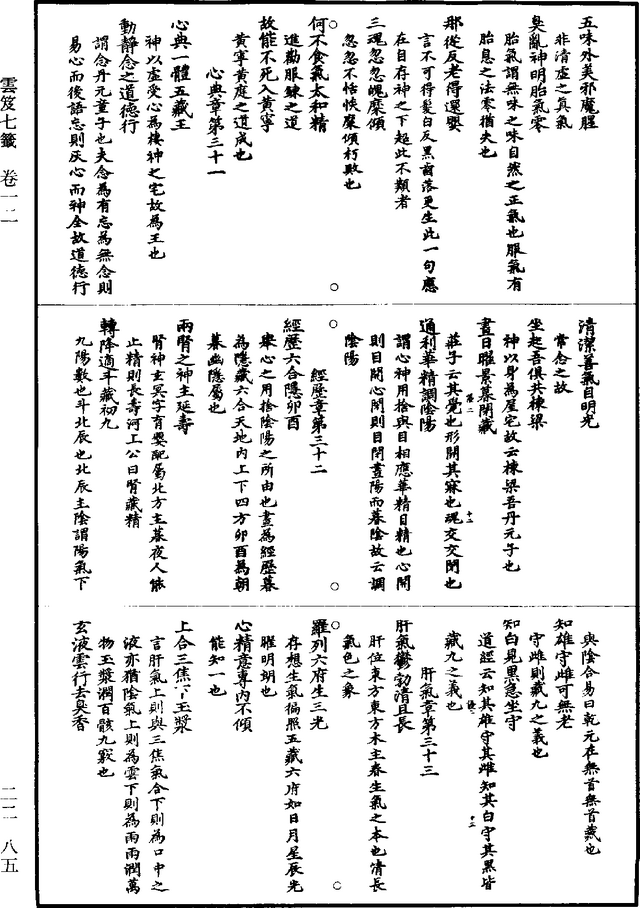 五味外美邪魔腥
非清虛之真氣
臭亂神明胎氣零
胎氣謂無味之味自然之正氣也服氣有
胎息之法零猶失也
那從反老得還嬰
言不可得髮白反黑齒落更生此一句應
在自存神之下超此不類者
三魂忽忽魄糜傾
忽忽不恬快糜傾朽敗也
何不食氣太和精
進勸服鍊之道
故能不死入黃寧
黃寧黃庭之道成也
心典章第三十一
心典一體五藏王
神以虛受心為棲神之宅故為王也
動靜念之道德行
謂念丹元童子也夫念為有忘為無念則
易心而後語忘則灰心而神全故道德行
清潔善氣自明光
常念之故
坐起吾俱共棟梁
神以身為屋宅故云棟梁吾丹元子也
晝日曜景暮閉藏
莊子云其覺也形開其寐也魂交交閉也
通利華精調陰陽
謂心神用捨與目相應華精目精也心開
則目開心閉則目閉晝陽而暮陰故云調
陰陽
經歷章第三十二
經歷六合隱卯酉
舉心之用捨陰陽之所由也晝為經歷暮
為隱藏六合天地內上下四方卯酉為朝
暮幽隱屬也
兩腎之神主延壽
腎神玄冥字育嬰配屬北方主暮夜人能
止精則長壽河上公曰腎藏精
轉降適斗藏初九
九陽數也斗北辰也北辰主陰謂陽氣下
與陰合易曰乾元在無首無首藏也
知雄守雌可無老
守雌則藏九之義也
知白見黑急坐守
道經云知其雄守其雌知其白守其黑皆
藏九之義也
肝氣章第三十三
肝氣鬱勃清且長
肝位東方東方木主春生氣之本也清長
氣色之象
羅列六府生三光
存想生氣徧照五藏六府如日月星辰光
曜明朗也
心精意專內不傾
能知一也
上合三焦下玉漿
言肝氣上則與三焦氣合下則為口中之
液亦猶陰氣上則為雲下則為雨雨潤萬
物玉漿潤百骸九竅也
玄液雲行去臭香
雲笈七籤 卷一二
二二 八五